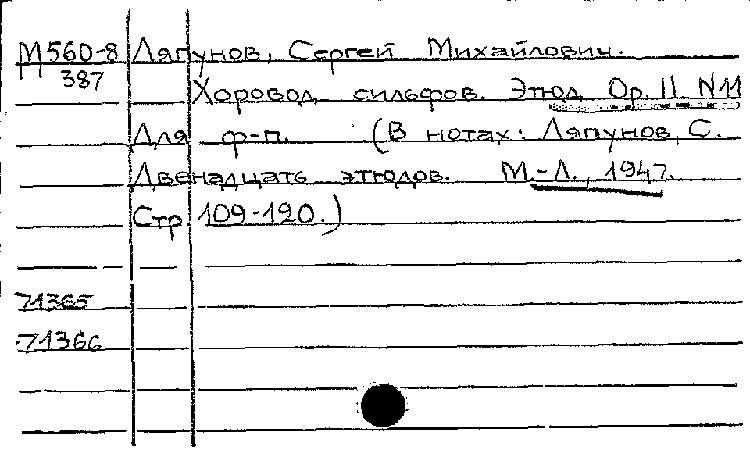 М560-8 Ляпунов, Сергей Михайлович.
387
Хоровод сильфов. Этюд Op. 11. N11
Для ф-п. (В нотах: Ляпунов, С.
Двенадцать этюдов. М.-Л., 1947.
Стр 109-120.)
71365
71366